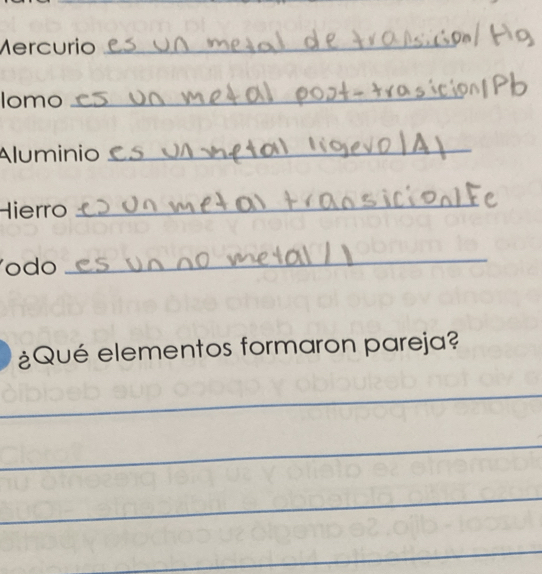 Mercurio es un metal de transicion/Hg
lomo es un metal post-trasicion/Pb
Aluminio es un metal ligero/Al
Hierro es un metal transicion/Fe
odo es un no metal/I
¿Qué elementos formaron pareja?